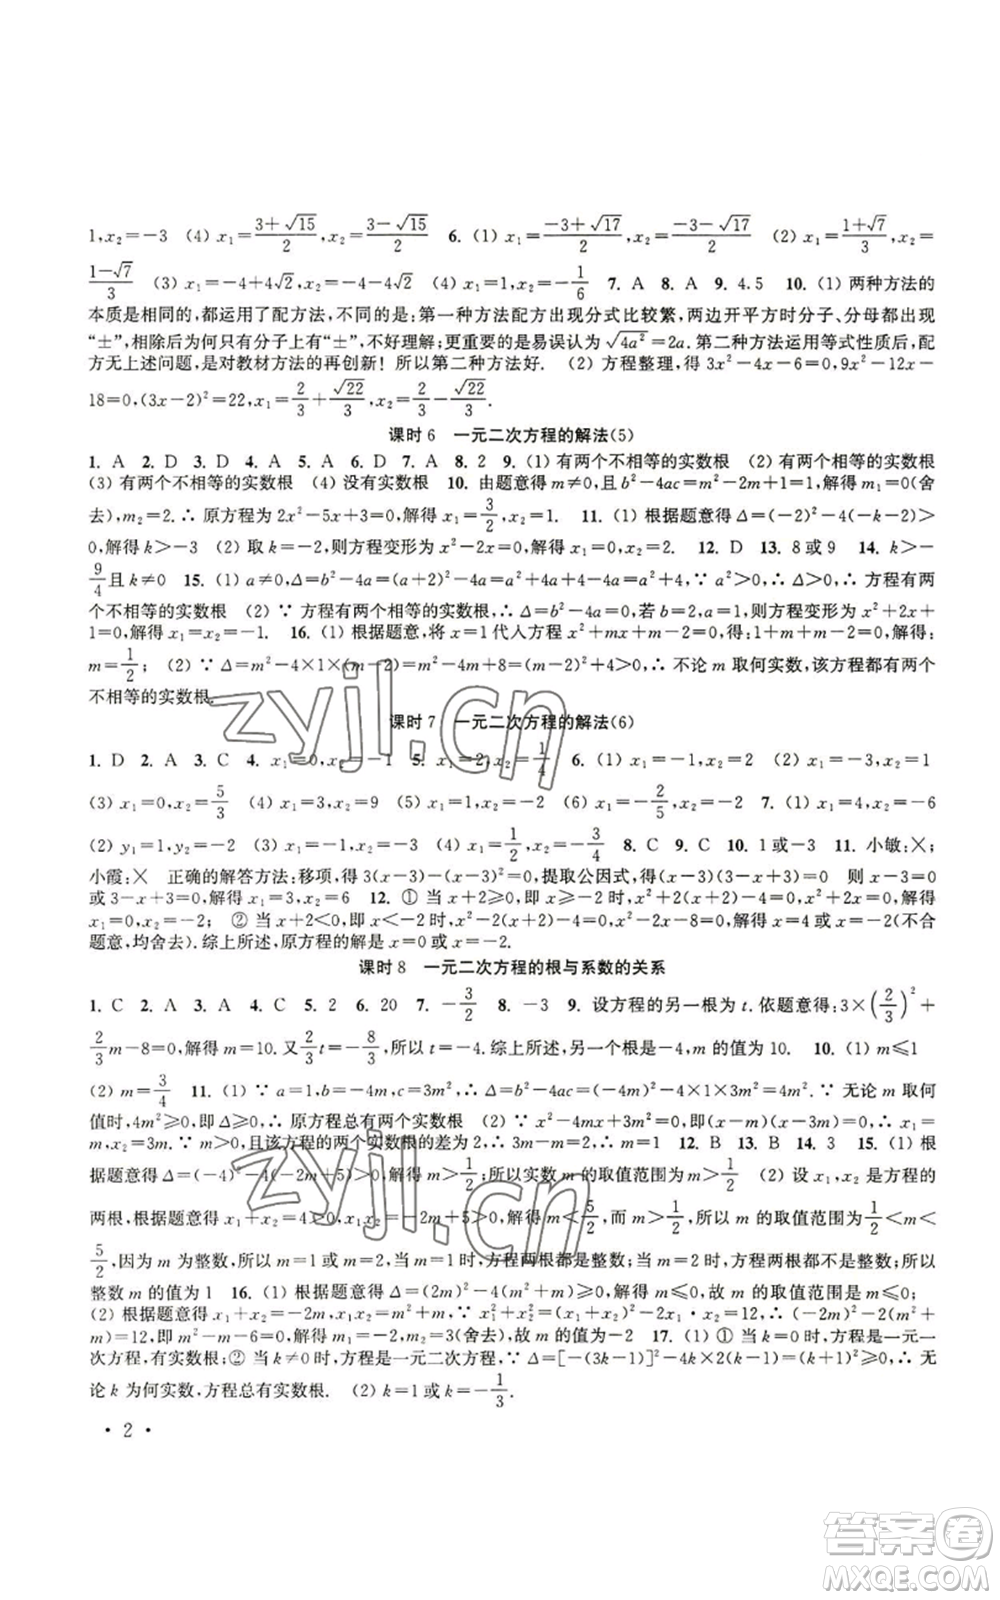 1,x₂=-3 (4) x₁=(3+√15)/2,x₂=(3-√15)/2 6. (1) x₁=(-3+√17)/2,x₂=(-3-√17)/2 (2) x₁=(1+√7)/3,x₂=
(1-√7)/3 (3) x₁=-4+4√2,x₂=-4-4√2 (4) x₁=1,x₂=-1/6 7. A 8. A 9. 4.5 10. (1) 两种方法的
本质是相同的,都运用了配方法,不同的是:第一种方法配方出现分式比较繁,两边开平方时分子、分母都出现
“±”,相除后为何只有分子上有“±”,不好理解;更重要的是易误认为√4a²=2a.第二种方法运用等式性质后,配
方无上述问题,是对教材方法的再创新!所以第二种方法好. (2) 方程整理,得3x²-4x-6=0,9x²-12x-
18=0,(3x-2)²=22,x₁=2/3+√22/3,x₂=2/3-√22/3.
课时6 一元二次方程的解法(5)
1. A 2. D 3. D 4. A 5. D 6. D 7. A 8. 2 9. (1) 有两个不相等的实数根 (2) 有两个不相等的实数根
(3) 有两个不相等的实数根 (4) 没有实数根 10. 由题意得m≠0,且b²-4ac=m²-2m+1=1,解得m₁=0(舍
去),m₂=2.∴ 原方程为2x²-5x+3=0,解得x₁=3/2,x₂=1. 11. (1) 根据题意得Δ=(-2)²-4(-k-2)>
0,解得k>-3 (2) 取k=-2,则方程变形为x²-2x=0,解得x₁=0,x₂=2. 12. D 13. 8或9 14. k>-
9/4且k≠0 15. (1) a≠0,Δ=b²-4a=(a+2)²-4a=a²+4a+4-4a=a²+4,∵ a²>0,∴ Δ>0,∴ 方程有两
个不相等的实数根 (2) ∵ 方程有两个相等的实数根,∴ Δ=b²-4a=0,若b=2,a=1,则方程变形为x²+2x+
1=0,解得x₁=x₂=-1. 16. (1) 根据题意,将x=1代入方程x²+mx+m-2=0,得:1+m+m-2=0,解得:
m=1/2; (2) ∵ Δ=m²-4×1×(m-2)=m²-4m+8=(m-2)²+4>0,∴ 不论m取何实数,该方程都有两个
不相等的实数根.
课时7 一元二次方程的解法(6)
1. D 2. A 3. C 4. x₁=0,x₂=-1 5. x₁=2,x₂=1/4 6. (1) x₁=-1,x₂=2 (2) x₁=-3,x₂=1
(3) x₁=0,x₂=5/3 (4) x₁=3,x₂=9 (5) x₁=x₂=2 (6) x₁=-2/5,x₂=2 7. (1) x₁=4,x₂=-6
(2) y₁=1,y₂=-2 (3) x₁=-1,x₂=-3 (4) x₁=1/2,x₂=-3/4 8. C 9. C 10. 1或-3 11. 小敏:×;
小霞:× 正确的解答方法:移项,得3(x-3)-(x-3)²=0,提取公因式,得(x-3)(3-x+3)=0 则x-3=0
或3-x+3=0,解得x₁=3,x₂=6 12. ① 当x+2≥0,即x≥-2时,x²+2(x+2)-4=0,x²+2x=0,解得
x₁=0,x₂=-2; ② 当x+2<0,即x<-2时,x²-2(x+2)-4=0,x²-2x-8=0,解得x=4或x=-2(不合
题意,均舍去).综上所述,原方程的解是x=0或x=-2.
课时8 一元二次方程的根与系数的关系
1. C 2. A 3. A 4. C 5. 2 6. 20 7. -3/2 8. -3 9. 设方程的另一根为t.依题意得:3×(2/3)²+
2/3m-8=0,解得m=10.又2/3t=-8/3,所以t=-4.综上所述,另一个根是-4,m的值为10. 10. (1) m≤1
(2) m=3/4 11. (1) ∵ a=1,b=-4m,c=3m²,∴ Δ=b²-4ac=(-4m)²-4×1×3m²=4m².∵ 无论m取何
值时,4m²≥0,即Δ≥0,∴ 原方程总有两个实数根 (2) ∵ x²-4mx+3m²=0,即(x-m)(x-3m)=0,∴ x₁=
m,x₂=3m.∵ m>0,且该方程的两个实数根的差为2,∴ 3m-m=2,∴ m=1 12. B 13. B 14. 3 15. (1) 根
据题意得Δ=(-4)²-4(-2m+5)>0,解得m>1/2;所以实数m的取值范围为m>1/2 (2) 设x₁,x₂是方程的
两根,根据题意得x₁+x₂=4>0,x₁x₂=-2m+5>0,解得m<5/2,而m>1/2,所以m的取值范围为1/2<m<
5/2,因为m为整数,所以m=1或m=2,当m=1时,方程两根都是整数;当m=2时,方程两根都不是整数;所以
整数m的值为1 16. (1) 根据题意得Δ=(2m)²-4(m²+m)≥0,解得m≤0,故m的取值范围是m≤0
(2) 根据题意得x₁+x₂=-2m,x₁x₂=m²+m,∵ x₁²+x₂²=(x₁+x₂)²-2x₁·x₂=12,∴ (-2m)²-2(m²+m)
=12,即m²-m-6=0,解得m₁=-2,m₂=3(舍去),故m的值为-2 17. (1) ① 当k=0时,方程是一元一
次方程,有实数根;② 当k≠0时,方程是一元二次方程,∵ Δ=[-(3k-1)]²-4k×2(k-1)=(k+1)²≥0,∴ 无
论k为何实数,方程总有实数根. (2) k=1或k=-1/3.
· 2 ·
zyjl.cn
zyjl.cn
答案圈
MXQE.COM